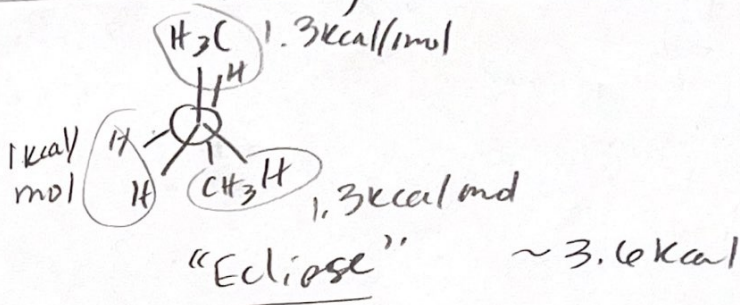 H₃C 1.3kcal/mol
H
1kcal/ H
mol H CH₃ H
1.3kcal mol
"Eclipse" ~3.6kcal